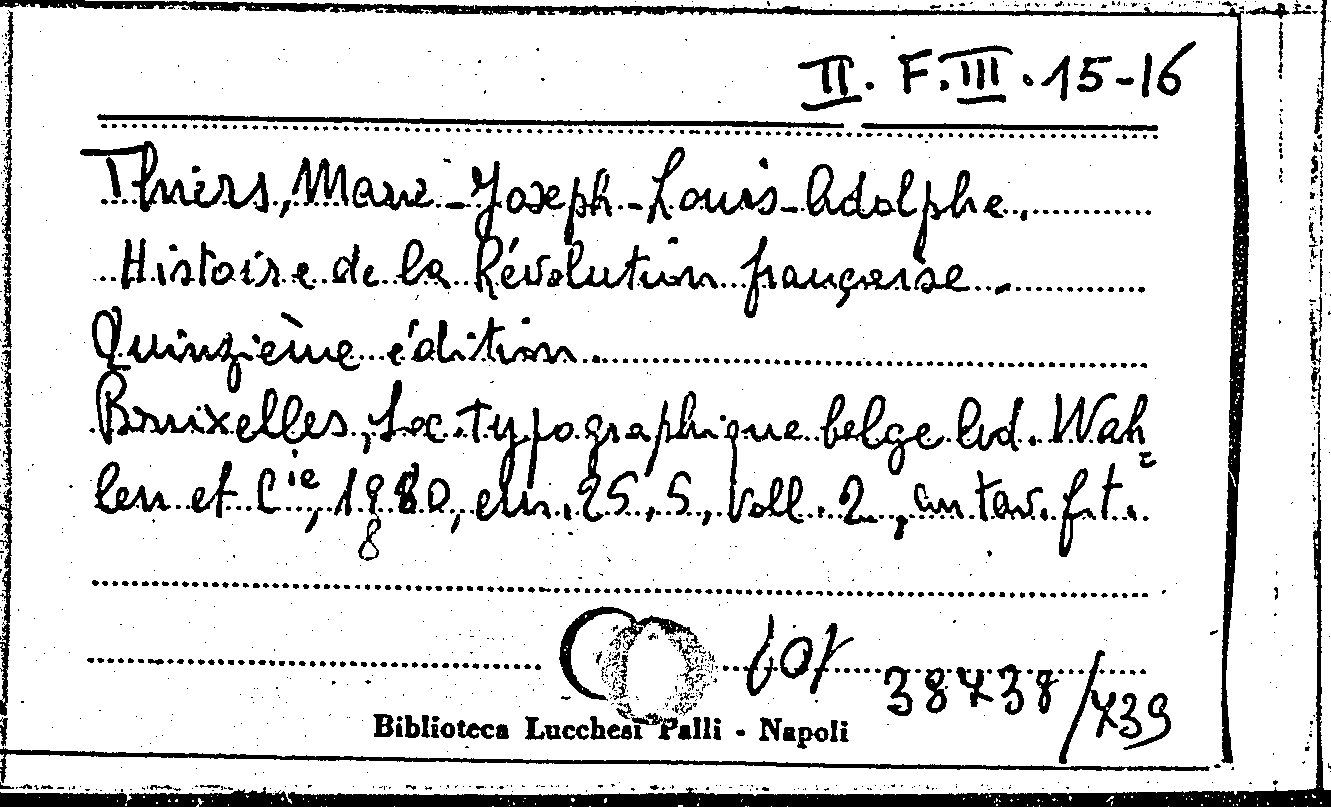 II. F. III. 15-16
Thiers, Marie-Joseph-Louis-Adolphe.
Histoire de la Révolution française.
Quinzième édition.
Bruxelles, Soc. typographique belge Ad. Wah=
len et C.ie, 1880, cm. 25,5, voll. 2, con tav. f. t.
8
38438/439
Biblioteca Lucchesi Palli - Napoli